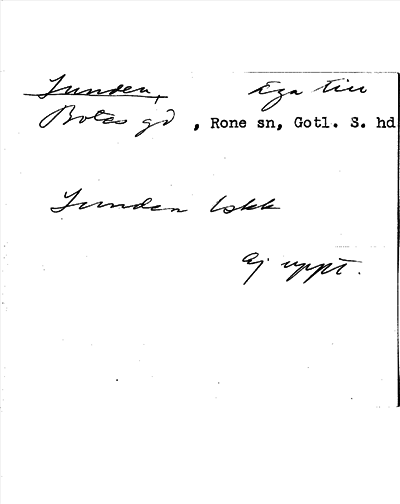 Lunden, Äga till
Botes gd, Rone sn, Gotl. S. hd
Lunden lokk
Ej uppt.